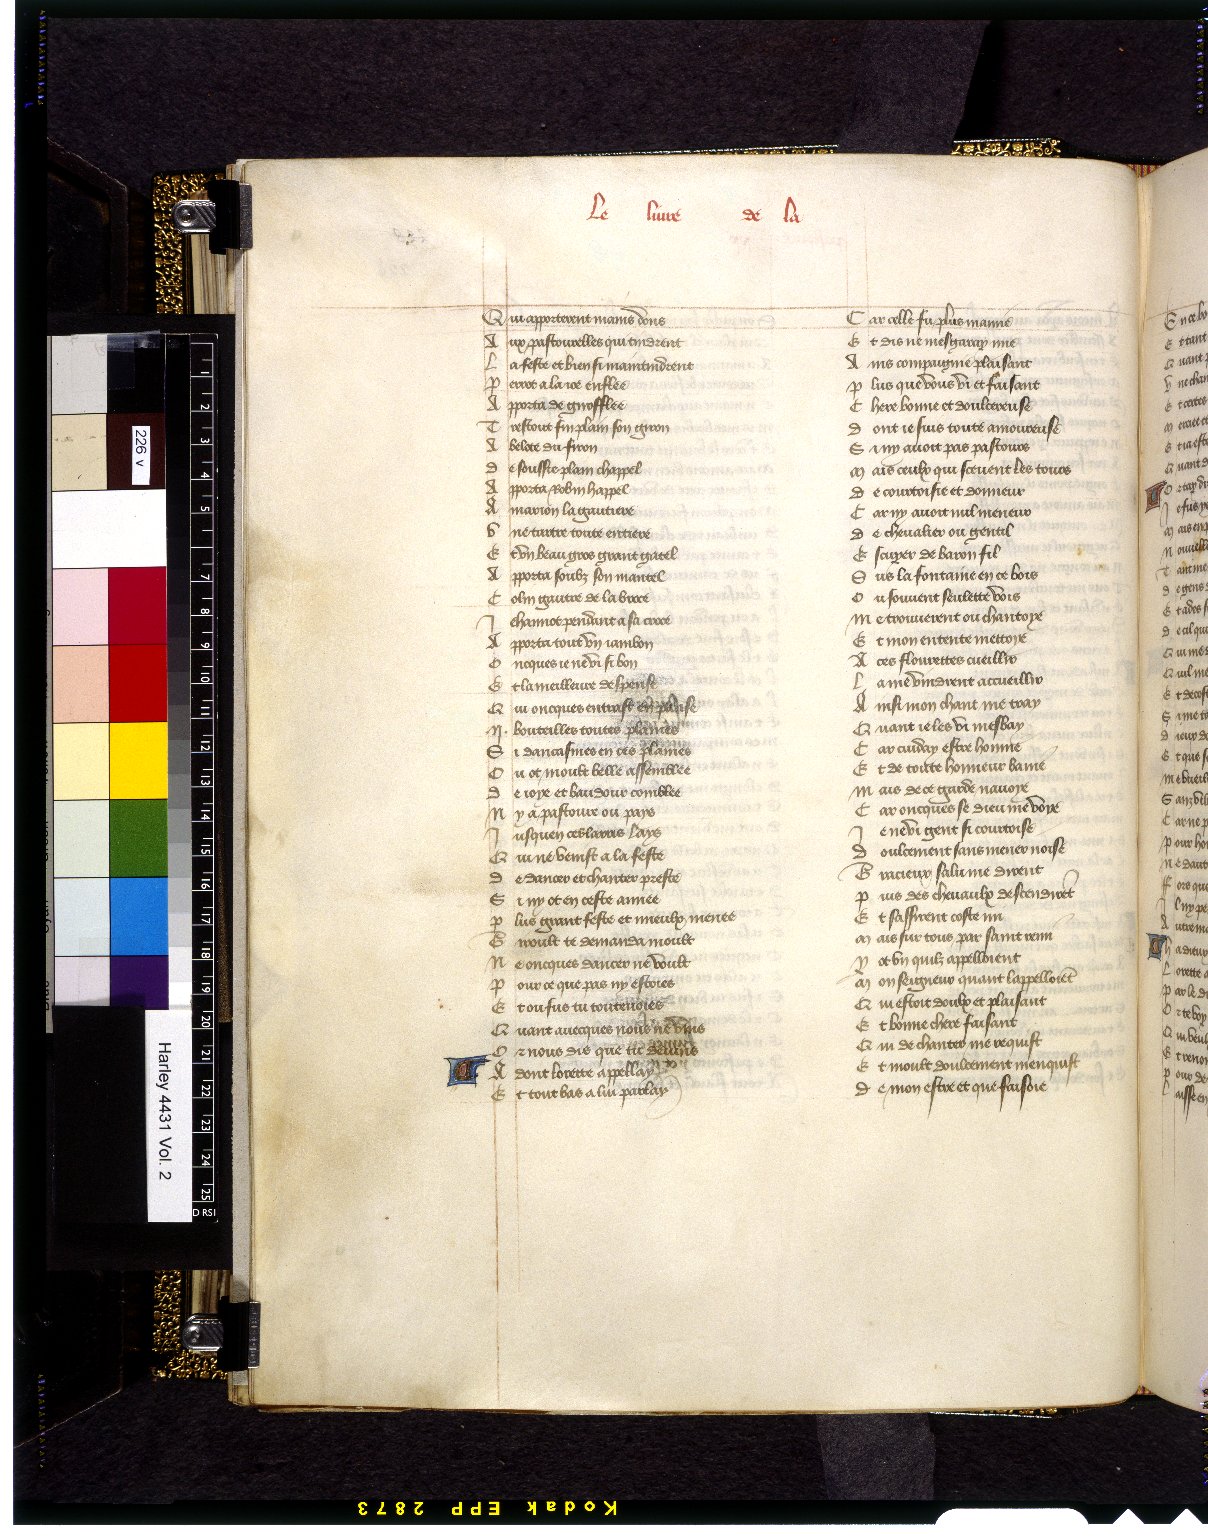 Le liure de la
Qui apporterent mains dons
Aux pastourelles qui tindrent
La feste et bien si maintindrent
Perrot a la ioe enflee
Apporta de giroflee
Trestout fin plain son giron
A belote du firon
De soussie plain chappel
Apporta Robin happel
A marion la gautiere
Vne turtre toute entiere
Et vn beau gros grant gastel
Apporta soubz son mantel
Colin gautre de la broce
Iehannot pendant a sa croce
Apporta tout vn iambon
Oncques ie ne vi si bon
Et la meilleure despense
Qui oncques entrast en panse
Bouteilles toutes plaines
Si dancasmes en ces plaines
Ou ot moult belle assemblee
De ioye et baudour comblee
N y a pastoure ou pays
Iusquen ces larris lays
Qui ne venist a la feste
De dancer et chanter preste
Si ny ot en ceste annee
Plus grant feste et mieulx menee
Groult te demanda moult
Ne oncques dancer ne voult
Pour ce que pas ny estoies
Et ou fus tu touteuoies
Quant auecques nous ne vins
Or nous dis que tu deuins
Adont lorette appellay
Et tout bas a lui parlay
Car celle fu plus mamie
Et dis ne mesgaray mie
Ains compaignie plaisant
Plus que vous vi et faisant
Chere bonne et doulcereuse
Dont ie suis toute amoureuse
Si ny auoit pas pastours
Mais ceulx qui sceuent les tours
De courtoisie et donneur
Car ny auoit nul meneur
De cheualier ou gentil
Escuyer de baron fil
Sus la fontaine en ce bois
Ou souuent seulette vois
Me trouuerent ou chantoye
Et mon entente mettoye
A ces flourettes cueillir
La me vindrent accueillir
Ainsi mon chant me tray
Quant ie les vi mesbay
Car cuiday estre honnie
Et de toute honneur banie
Mais de ce garde nauoye
Car oncques se dieu me voye
Ie ne vi gent si courtoise
Doulcement sans mener noise
Gracieux salu me dirent
Puis des cheuaulx descendirent
Et sassirent coste mi
Mais sur tous par saint remi
Y ot vn quilz appelloient
Monseigneur quant lappelloient
Qui estoit doulx et plaisant
Et bonne chere faisant
Qui de chanter me requist
Et moult doulcement menquist
De mon estre et que faisoie
226 v
Harley 4431 Vol. 2
Kodak EPP 2873